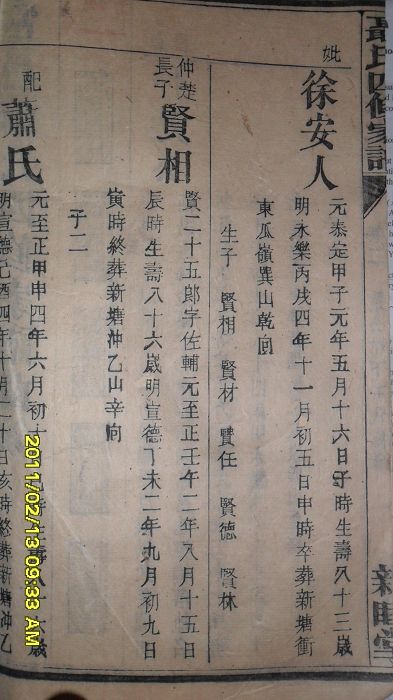 聶氏四修家譜
妣
徐安人
元泰定甲子元年五月十六日子時生壽八十三歲
明永樂丙戌四年十一月初五日申時卒葬新塘衝
東瓜嶺巽山乾向
生子 賢相 賢材 賢任 賢德 賢林
仲楚
長子
賢相
賢二十五郎字佐輔元至正壬午二年八月十五日
辰時生壽八十六歲明宣德丁未二年九月初九日
寅時終葬新塘沖乙山辛向
子二
配
蕭氏
元至正甲申四年六月初十
時生壽八十
歲
明宣德己酉四年十月二十日亥時終葬新塘沖乙
2011/02/13 09:33 AM